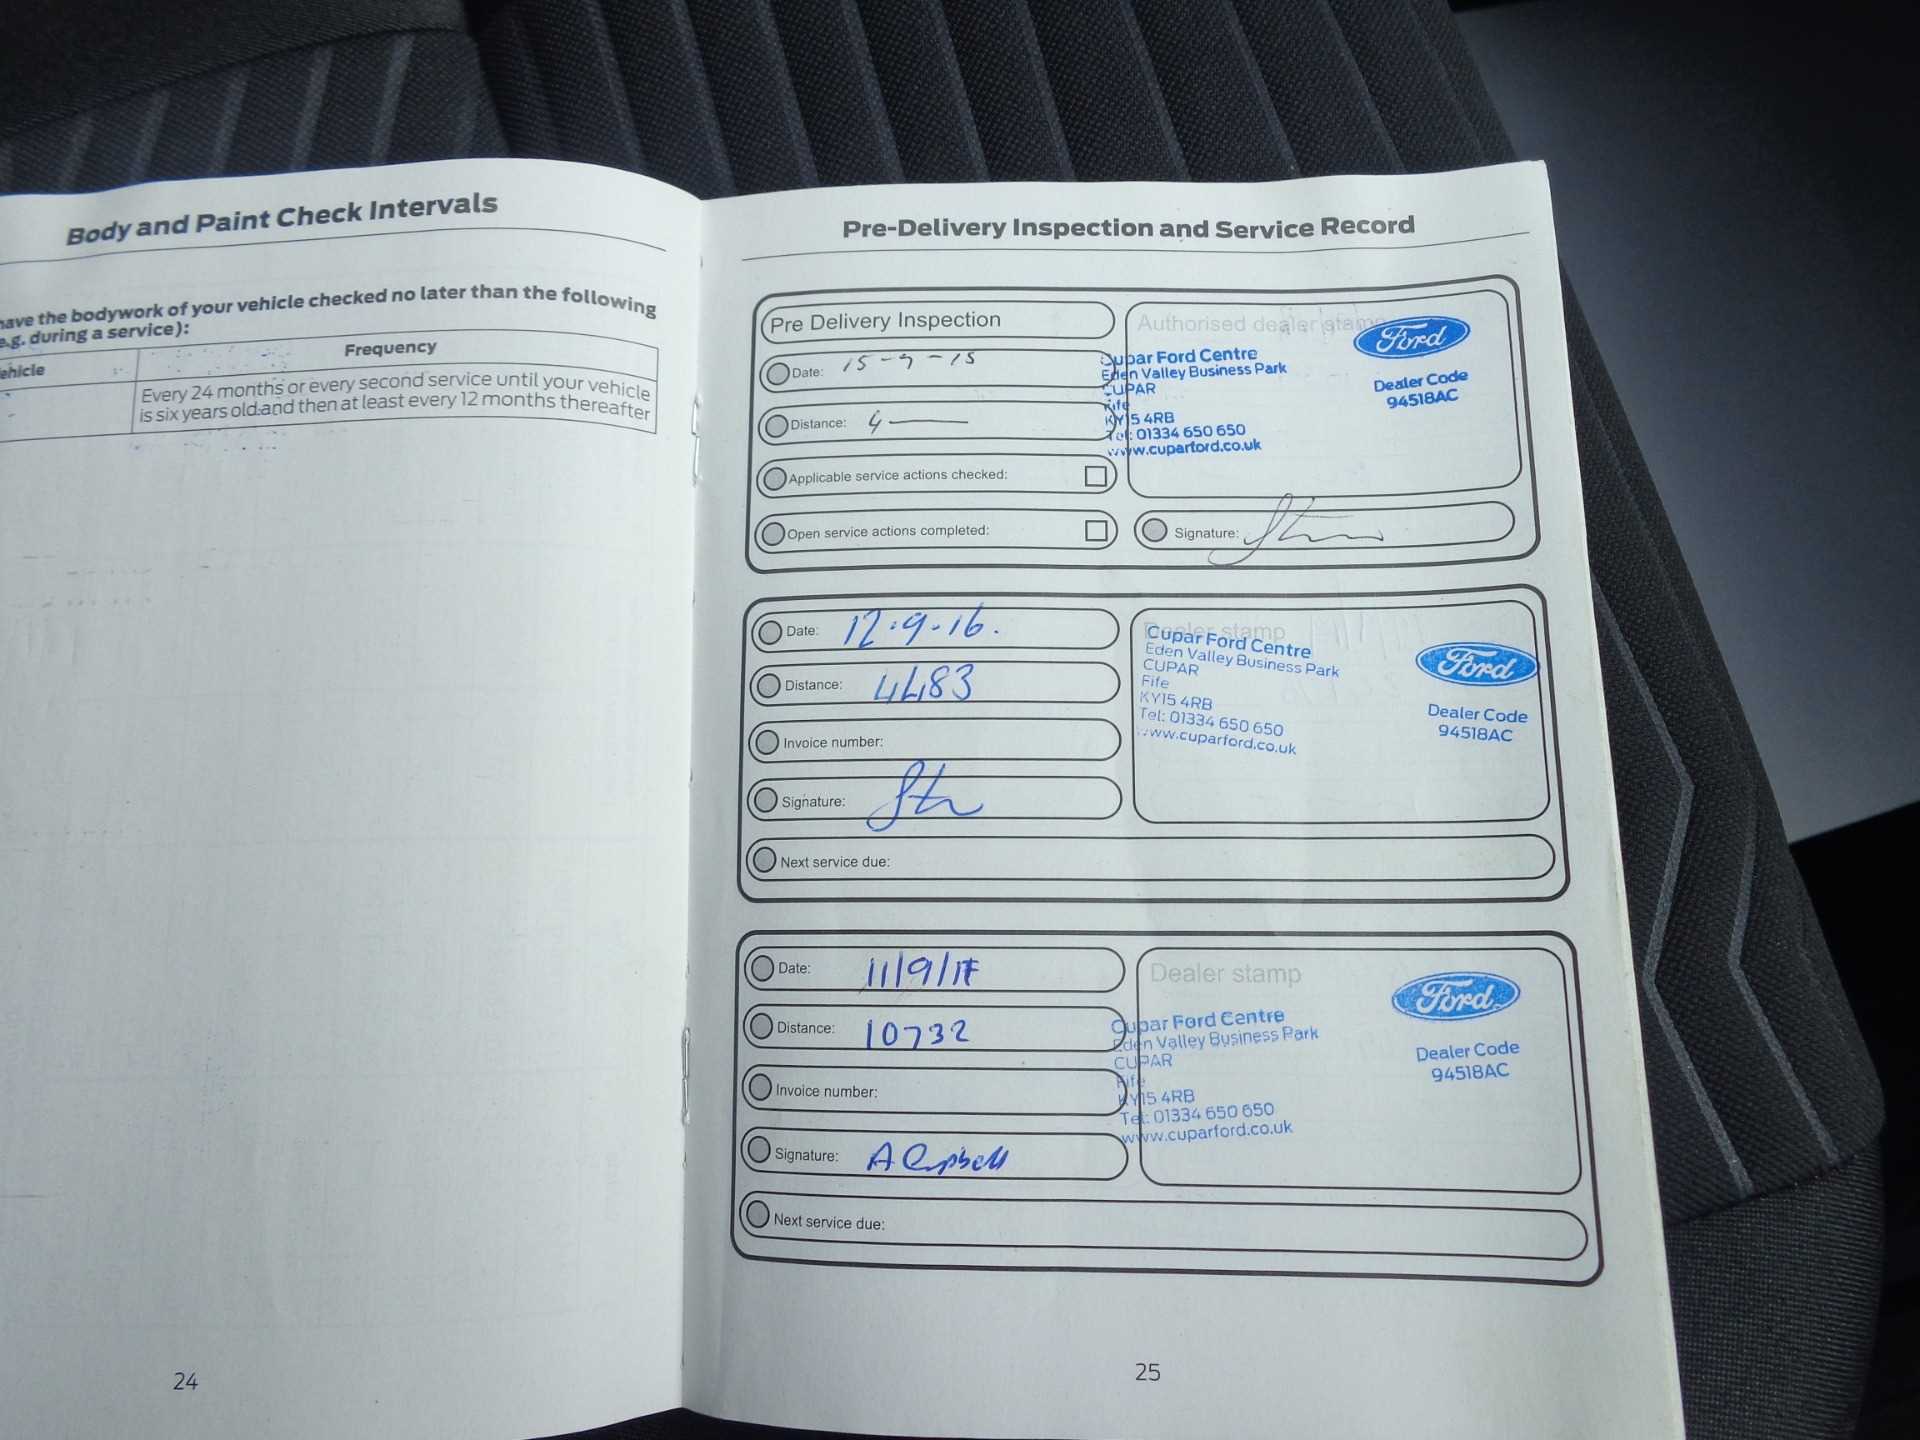 Body and Paint Check Intervals
have the bodywork of your vehicle checked no later than the following
e.g. during a service):
ehicle
Frequency
Every 24 months or every second service until your vehicle
is six years old and then at least every 12 months thereafter
24
Pre-Delivery Inspection and Service Record
Pre Delivery Inspection
Date: 15-9-15
Distance: 4
Applicable service actions checked:
Open service actions completed:
Authorised dealer stamp
Ford
Cupar Ford Centre
Eden Valley Business Park
CUPAR
Fife
KY15 4RB
Tel: 01334 650 650
www.cuparford.co.uk
Dealer Code
94518AC
Signature:
Date: 12.9.16.
Distance: 4483
Invoice number:
Signature:
Next service due:
Dealer stamp
Cupar Ford Centre
Eden Valley Business Park
CUPAR
Fife
KY15 4RB
Tel: 01334 650 650
www.cuparford.co.uk
Ford
Dealer Code
94518AC
Date: 11/9/17
Distance: 10732
Invoice number:
Signature: A Campbell
Next service due:
Dealer stamp
Cupar Ford Centre
Eden Valley Business Park
CUPAR
Fife
KY15 4RB
Tel: 01334 650 650
www.cuparford.co.uk
Ford
Dealer Code
94518AC
25